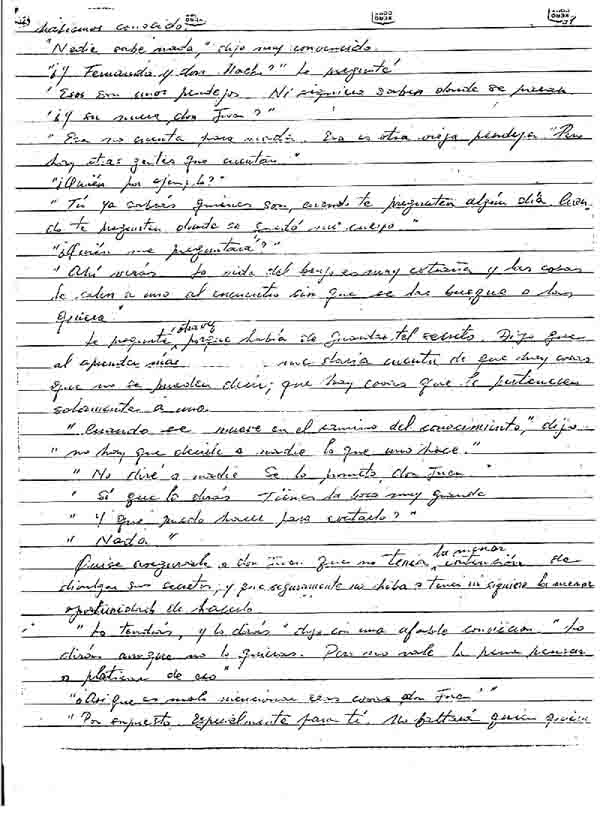 habíamos conocido.
"Nadie sabe nada," dijo muy convencido.
"¿Y Fernanda y don Nacho?" le pregunté
"Esos son unos pendejos. Ni siquiera saben donde se
"¿Y su nuera, don Juan?"
"Esa no cuenta para nada. Esa es otra vieja pendeja. Pero
hay otras gentes que cuentan."
"¿Quién por ejemplo?"
"Tú ya sabrás quienes son, cuando te pregunten algún día. Cuan-
do te pregunten donde se quedó mi cuerpo."
"¿Quién me preguntará?"
"Ahí verás. La vida del brujo es muy extraña y las cosas
le salen a uno al encuentro sin que se las busque o las
quiera"
Le pregunté otra vez porque había de guardar tal secreto. Dijo que
al aprender más me daría cuenta de que hay cosas
que no se pueden decir; que hay cosas que le pertenecen
solamente a uno.
"Cuando se mueve en el camino del conocimiento," dijo
"no hay que decirle a nadie lo que uno hace."
"No diré a nadie. Se lo prometo, don Juan."
"Sí que lo dirás. Tienes la boca muy grande
"Y que puedo hacer para evitarlo?"
"Nada"
Quise asegurarle a don Juan que no tenía la menor intención de
divulgar sus secretos, y que seguramente no iba a tener ni siquiera la menor
oportunidad de hacerlo.
"Lo tendrás, y lo dirás" dijo con una afable convicción. "Lo
dirás aunque no lo quieras. Pero no vale la pena pensar
o platicar de eso"
"¿Así que es malo mencionar esas cosas don Juan?"
"Por supuesto. Especialmente para tí. No faltará quien quiera